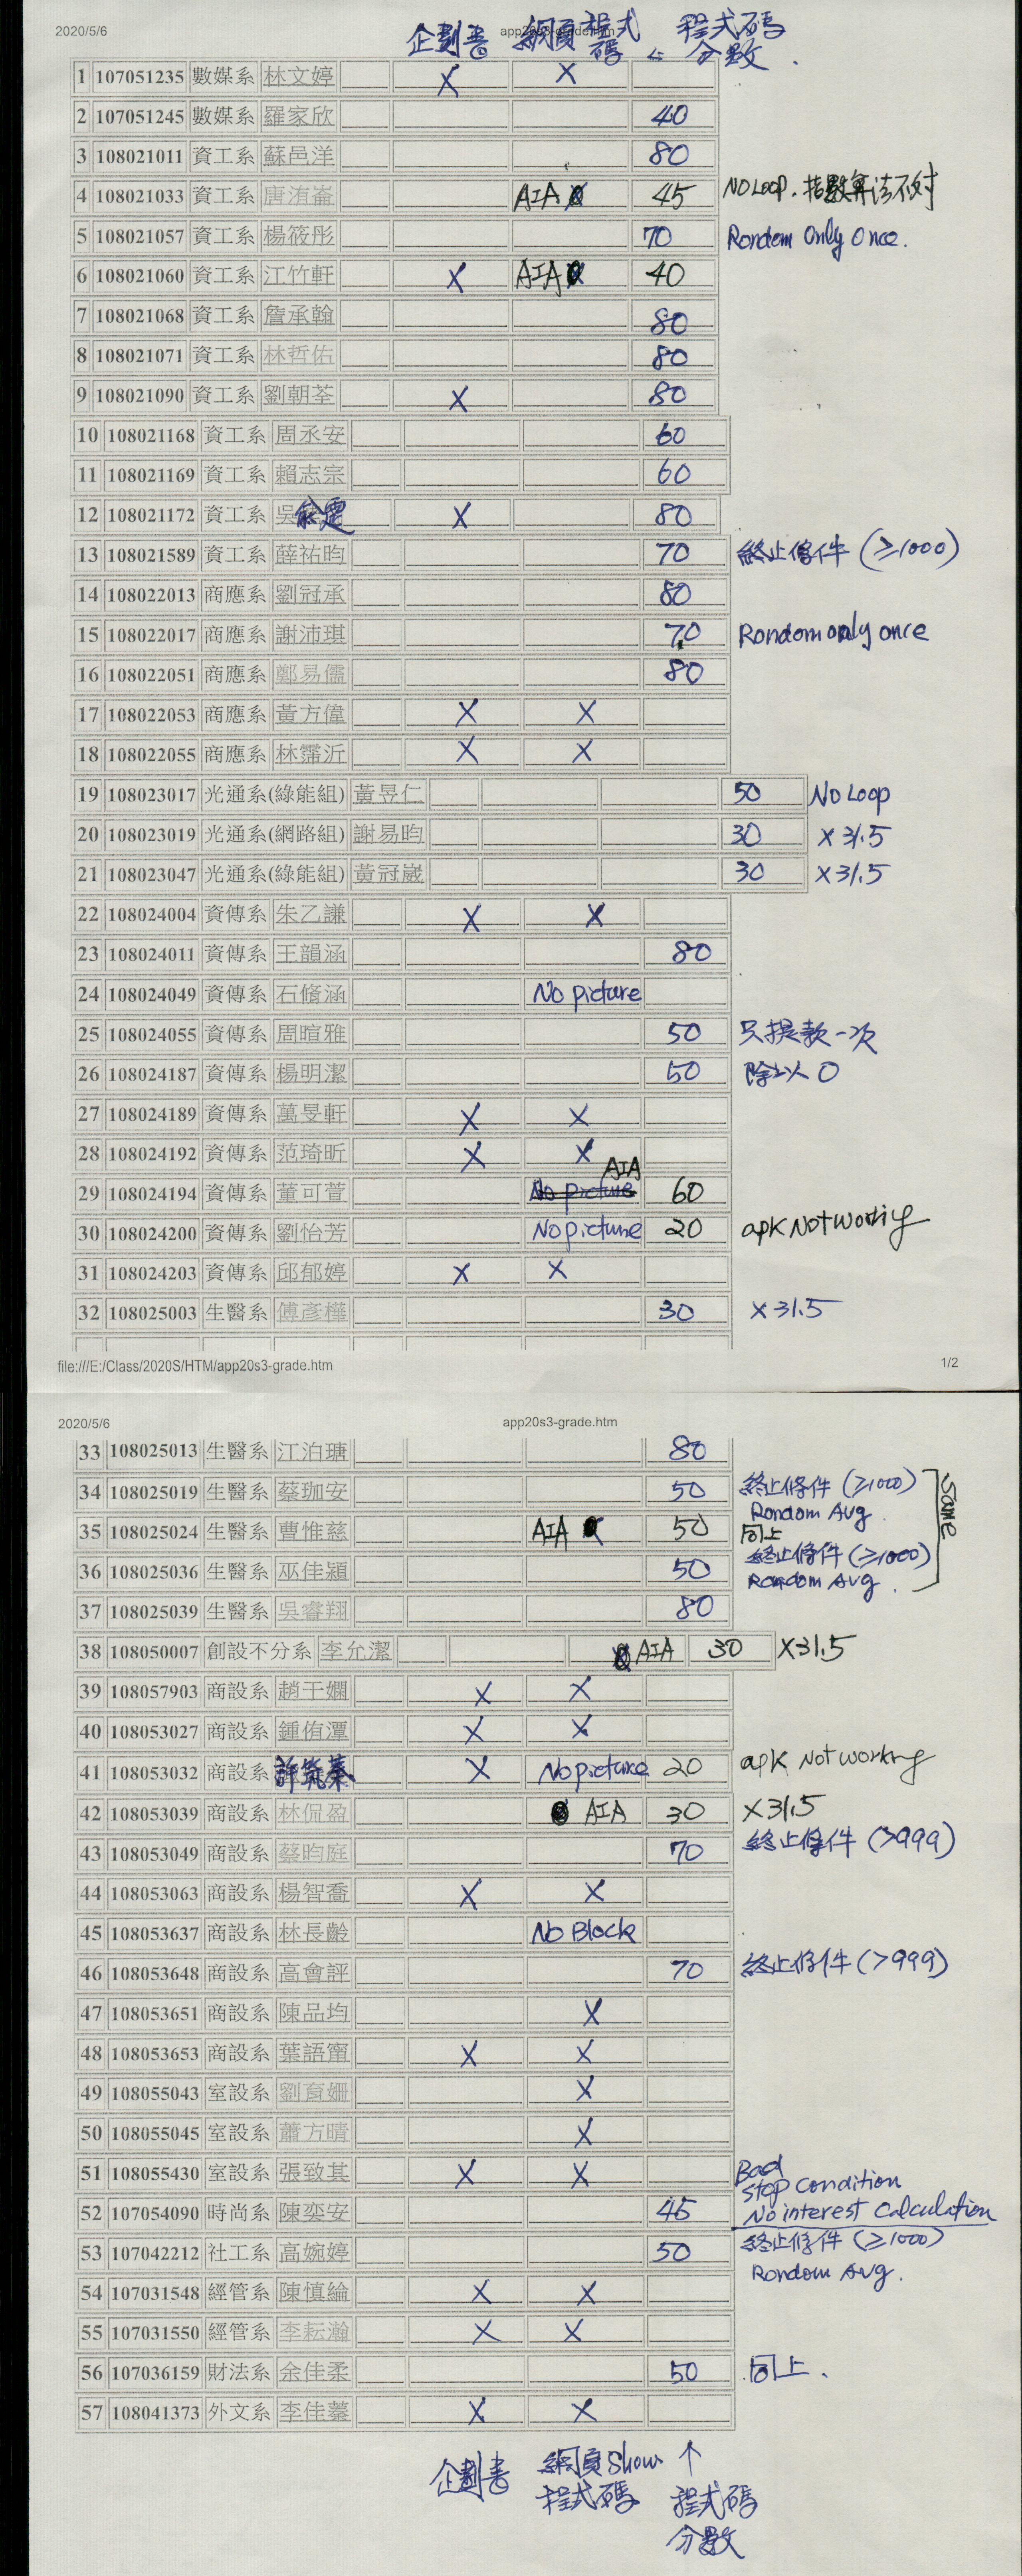 2020/5/6 app20s3-grade.htm
企劃書 網頁程式碼 程式碼分數
1 107051235 數媒系 林文婷 X X
2 107051245 數媒系 羅家欣 40
3 108021011 資工系 蘇邑洋 80
4 108021033 資工系 唐洧崙 AIA 45 NO LOOP. 指數算法不对
5 108021057 資工系 楊筱彤 70 Random Only Once.
6 108021060 資工系 江竹軒 X AIA 40
7 108021068 資工系 詹承翰 80
8 108021071 資工系 林哲佑 80
9 108021090 資工系 劉朝荃 X 80
10 108021168 資工系 周丞安 60
11 108021169 資工系 賴志宗 60
12 108021172 資工系 吳 X 80
13 108021589 資工系 薛祐昀 70 終止條件 (≥1000)
14 108022013 商應系 劉冠承 80
15 108022017 商應系 謝沛琪 70 Random only once
16 108022051 商應系 鄭易儒 80
17 108022053 商應系 黃方偉 X X
18 108022055 商應系 林霈沂 X X
19 108023017 光通系(綠能組) 黃昱仁 50 No Loop
20 108023019 光通系(網路組) 謝易昀 30 X 31.5
21 108023047 光通系(綠能組) 黃冠崴 30 X 31.5
22 108024004 資傳系 朱乙謙 X X
23 108024011 資傳系 王韻涵 80
24 108024049 資傳系 石脩涵 No picture
25 108024055 資傳系 周暄雅 50 只提款一次
26 108024187 資傳系 楊明潔 50 除以 0
27 108024189 資傳系 萬旻軒 X X
28 108024192 資傳系 范琦昕 X X
29 108024194 資傳系 董可萱 No picture AIA 60
30 108024200 資傳系 劉怡芳 No picture 20 apk Not working
31 108024203 資傳系 邱郁婷 X X
32 108025003 生醫系 傅彥樺 30 X 31.5
file:///E:/Class/2020S/HTM/app20s3-grade.htm 1/2
2020/5/6 app20s3-grade.htm
33 108025013 生醫系 江泊瑭 80
34 108025019 生醫系 蔡珈安 50 終止條件 (≥1000) Random Avg. Same
35 108025024 生醫系 曹惟慈 AIA 50 同上
36 108025036 生醫系 巫佳穎 50 終止條件 (≥1000) Random Avg.
37 108025039 生醫系 吳睿翔 80
38 108050007 創設不分系 李允潔 AIA 30 X31.5
39 108057903 商設系 趙于嫻 X X
40 108053027 商設系 鍾侑潭 X X
41 108053032 商設系 許筑蓁 X No picture 20 apk Not working
42 108053039 商設系 林侃盈 AIA 30 X31.5
43 108053049 商設系 蔡昀庭 70 終止條件 (>999)
44 108053063 商設系 楊智喬 X X
45 108053637 商設系 林長齡 No Block
46 108053648 商設系 高會評 70 終止條件 (>999)
47 108053651 商設系 陳品均 X
48 108053653 商設系 葉語甯 X X
49 108055043 室設系 劉育姍 X
50 108055045 室設系 蕭方晴 X
51 108055430 室設系 張致其 X X
52 107054090 時尚系 陳奕安 45 Bad stop condition No interest calculation
53 107042212 社工系 高婉婷 50 終止條件 (≥1000) Random Avg.
54 107031548 經管系 陳慎綸 X X
55 107031550 經管系 李耘瀚 X X
56 107036159 財法系 余佳柔 50 同上.
57 108041373 外文系 李佳蓁 X X
企劃書 網頁Show程式碼 ↑程式碼分數